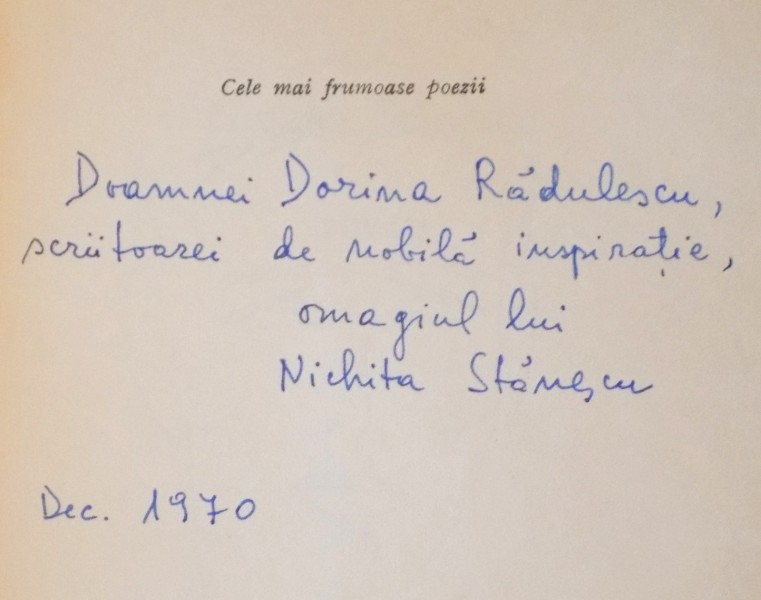 Cele mai frumoase poezii
Doamnei Dorina Rădulescu,
scriitoarei de nobilă inspirație,
omagiul lui
Nichita Stănescu
Dec. 1970